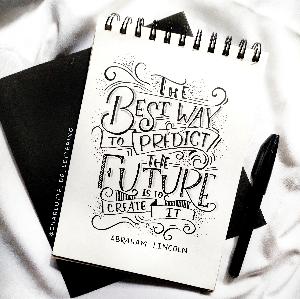 THE
BEST WAY
TO PREDICT
THE
FUTURE
IS TO
CREATE IT
ABRAHAM LINCOLN